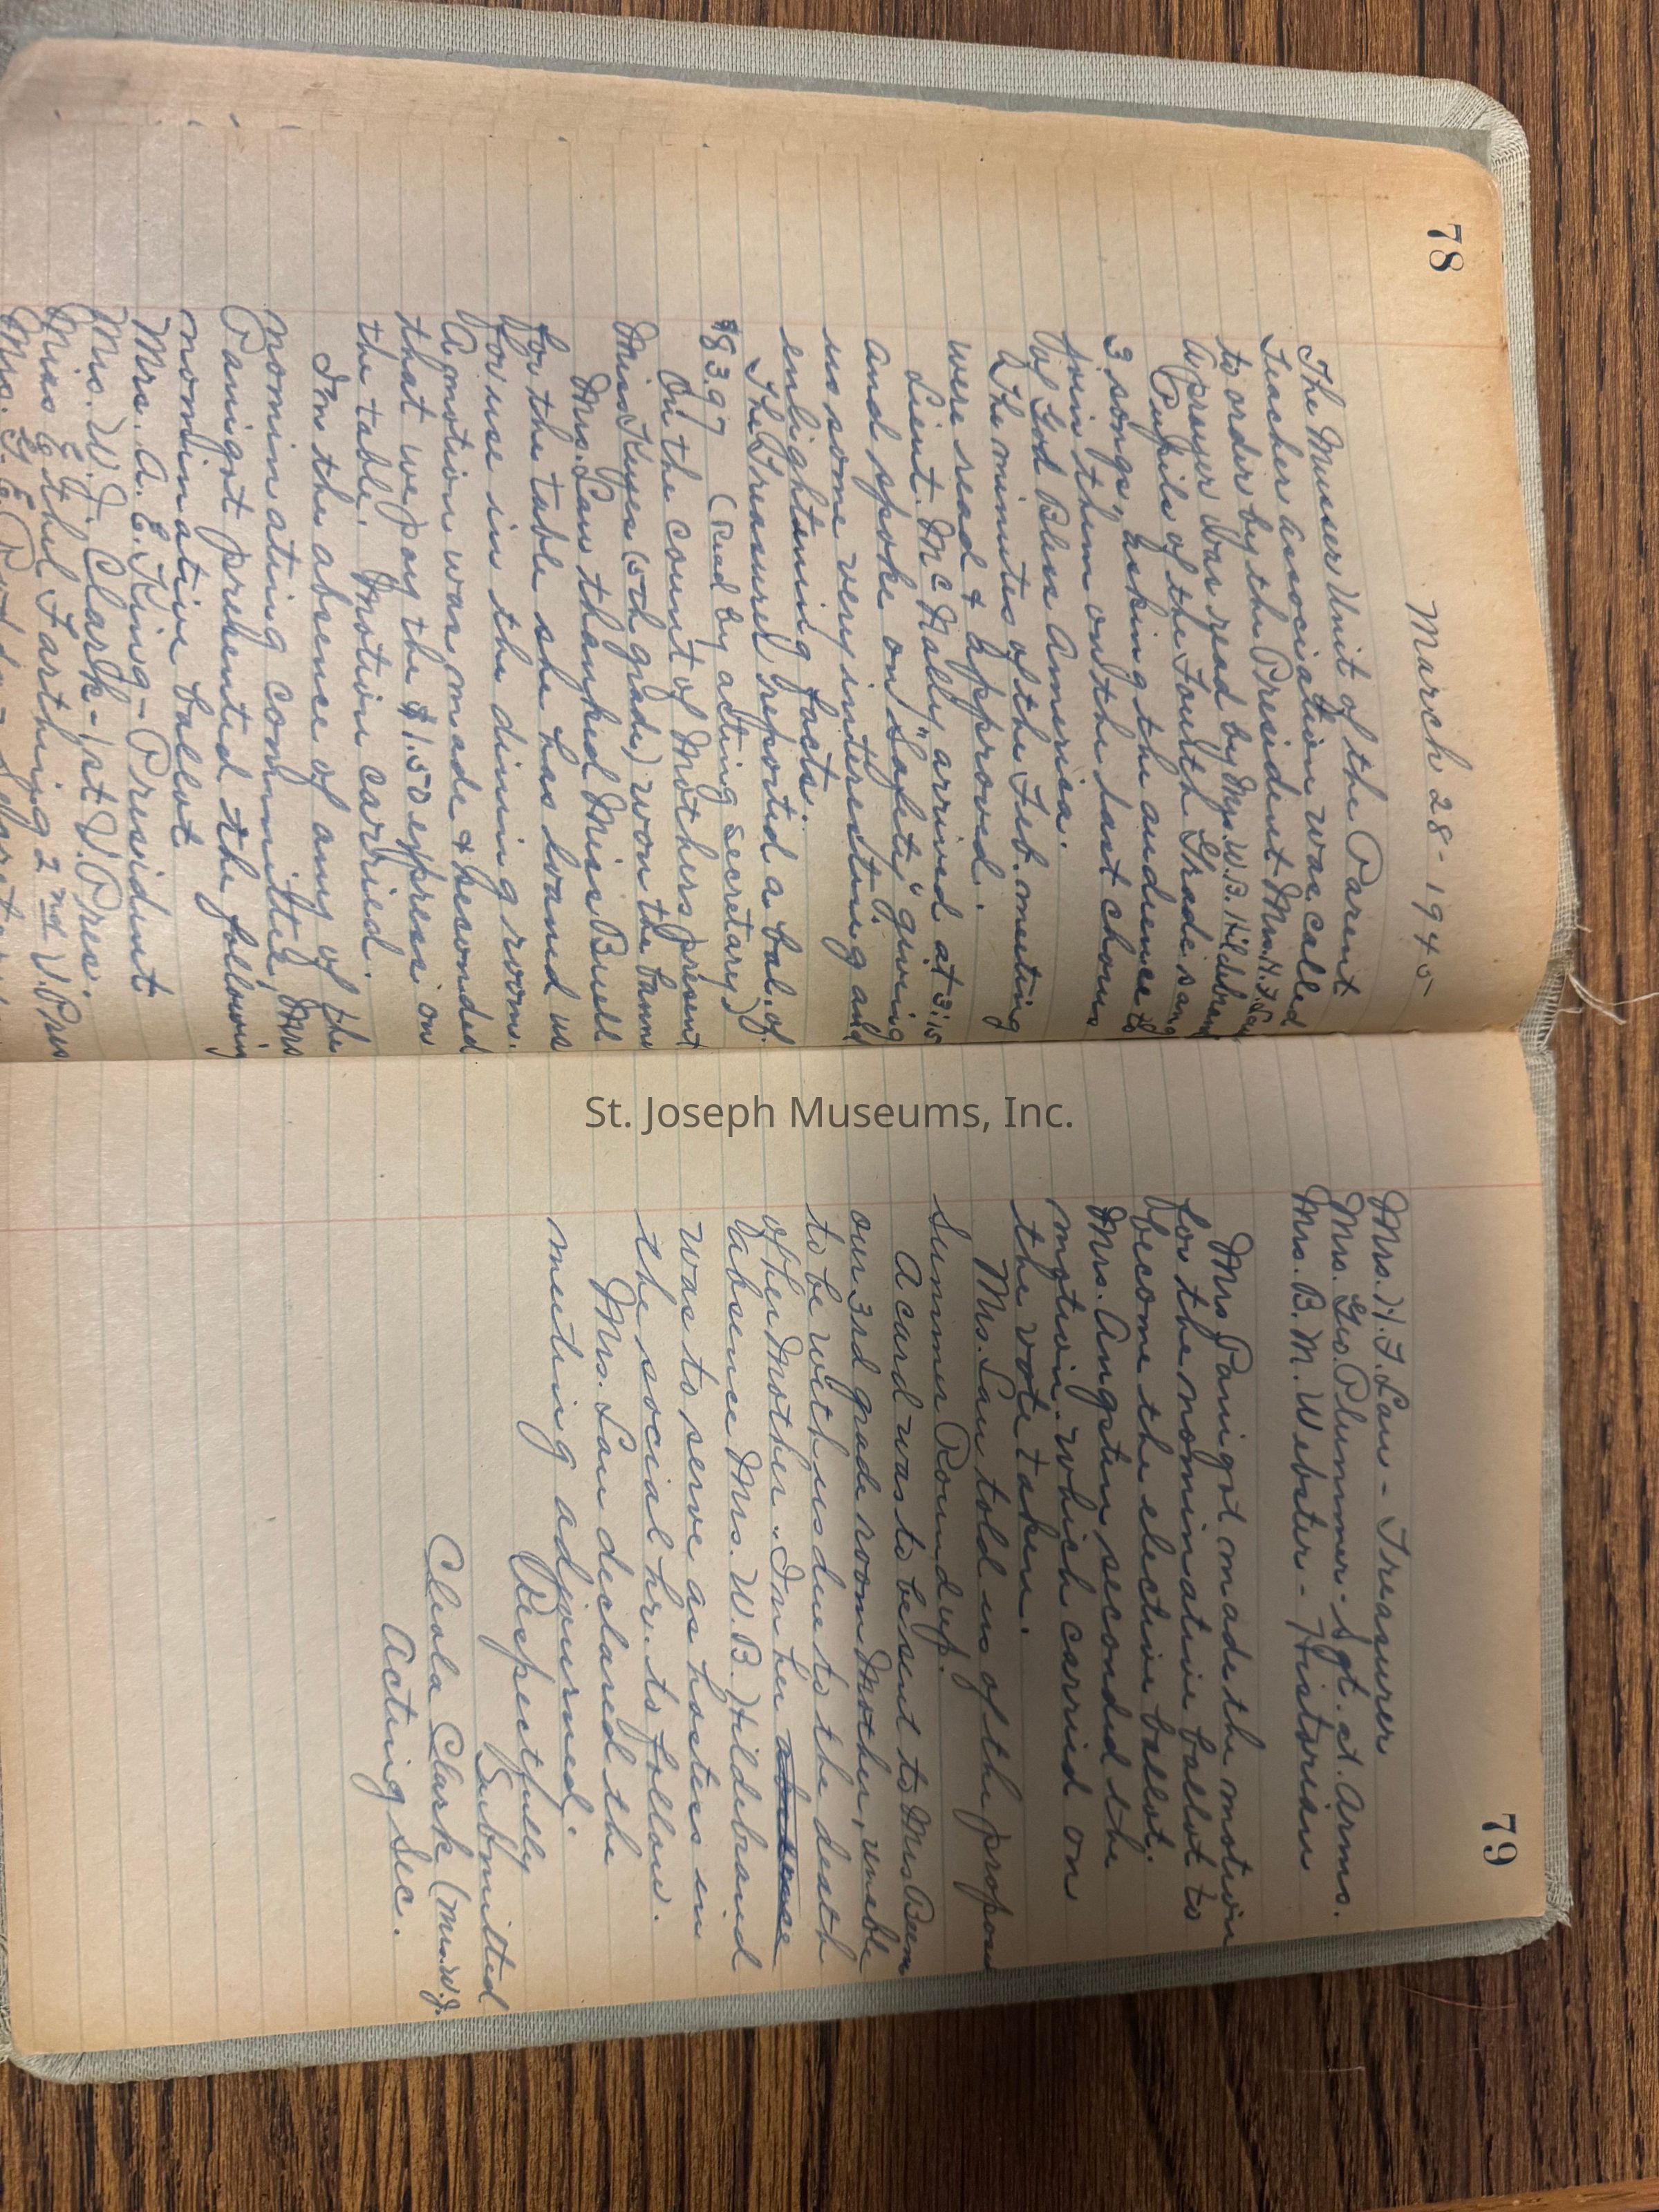 78
March 28-1945
The Musser Unit of the Parent
Teacher association was called
to order by the President Mrs. H. F. Lau
A prayer was read by Mrs. W. B. Hildebrand
Pupils of the Fourth Grade sang
3 songs, asking the audience to
join them on the last chorus
of God Bless America.
The minutes of the Feb. meeting
were read & approved.
Lieut. McNally arrived at 3:15
and spoke on "Safety" giving
us some very interesting and
enlightening facts.
The Treasurer reported a bal. of
$83.97 (Read by acting secretary)
On the count of Mothers present
Miss Keyes (5th grade) won the banner
Mrs. Lau thanked Miss Buell
for the table she has loaned us
for use in the dining room.
A motion was made & seconded
that we pay the $1.50 express on
the table. Motion carried.
In the absence of any of the
nominating committee, Mrs
Panigot presented the following
nominative ballot
Mrs. A. E. King - President
Mrs. W. J. Clark - 1st V. Pres.
Miss Ethel Farthing 2nd V. Pres
Mrs. F. E.
79
Mrs. H. F. Lau - Treasurer
Mrs. Geo. Plummer - Sgt. at. Arms.
Mrs. B. M. Webster - Historian
Mrs Panigot made the motion
for the nominative ballot to
become the elective ballot.
Mrs. Angstin seconded the
motion. which carried on
the vote taken.
Mrs. Lau told us of the proposed
Summer Round up.
A card was to be sent to Mrs Bem
our 3rd grade room Mother, unable
to be with us due to the death
of her Mother. In her absence
absence Mrs. W. B. Hildebrand
was to serve as hostess in
the social hr. to follow.
Mrs. Lau declared the
meeting adjourned.
Respectfully
Submitted
Cleola Clark (Mrs. W. J.
Acting Sec.
St. Joseph Museums, Inc.